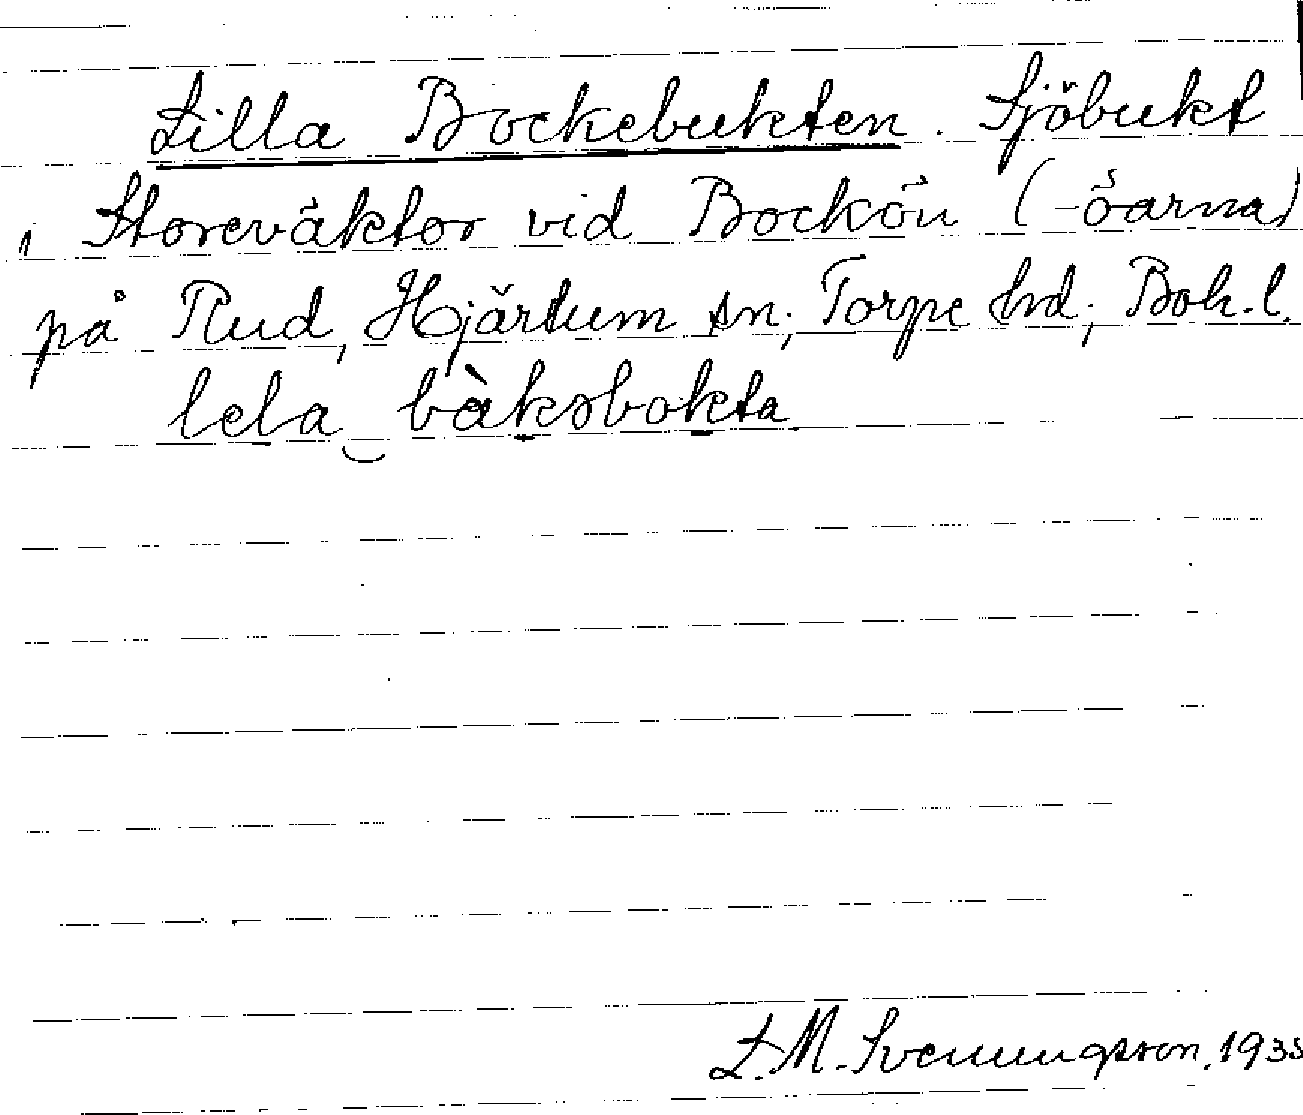 Lilla Bockebukten. Sjöbukt
i Storeväktor vid Bockön (-öarna)
på Rud, Hjärtum sn, Torpe hd, Boh. l.
lela‿bàksbokta
L.M. Svenungsson. 1935